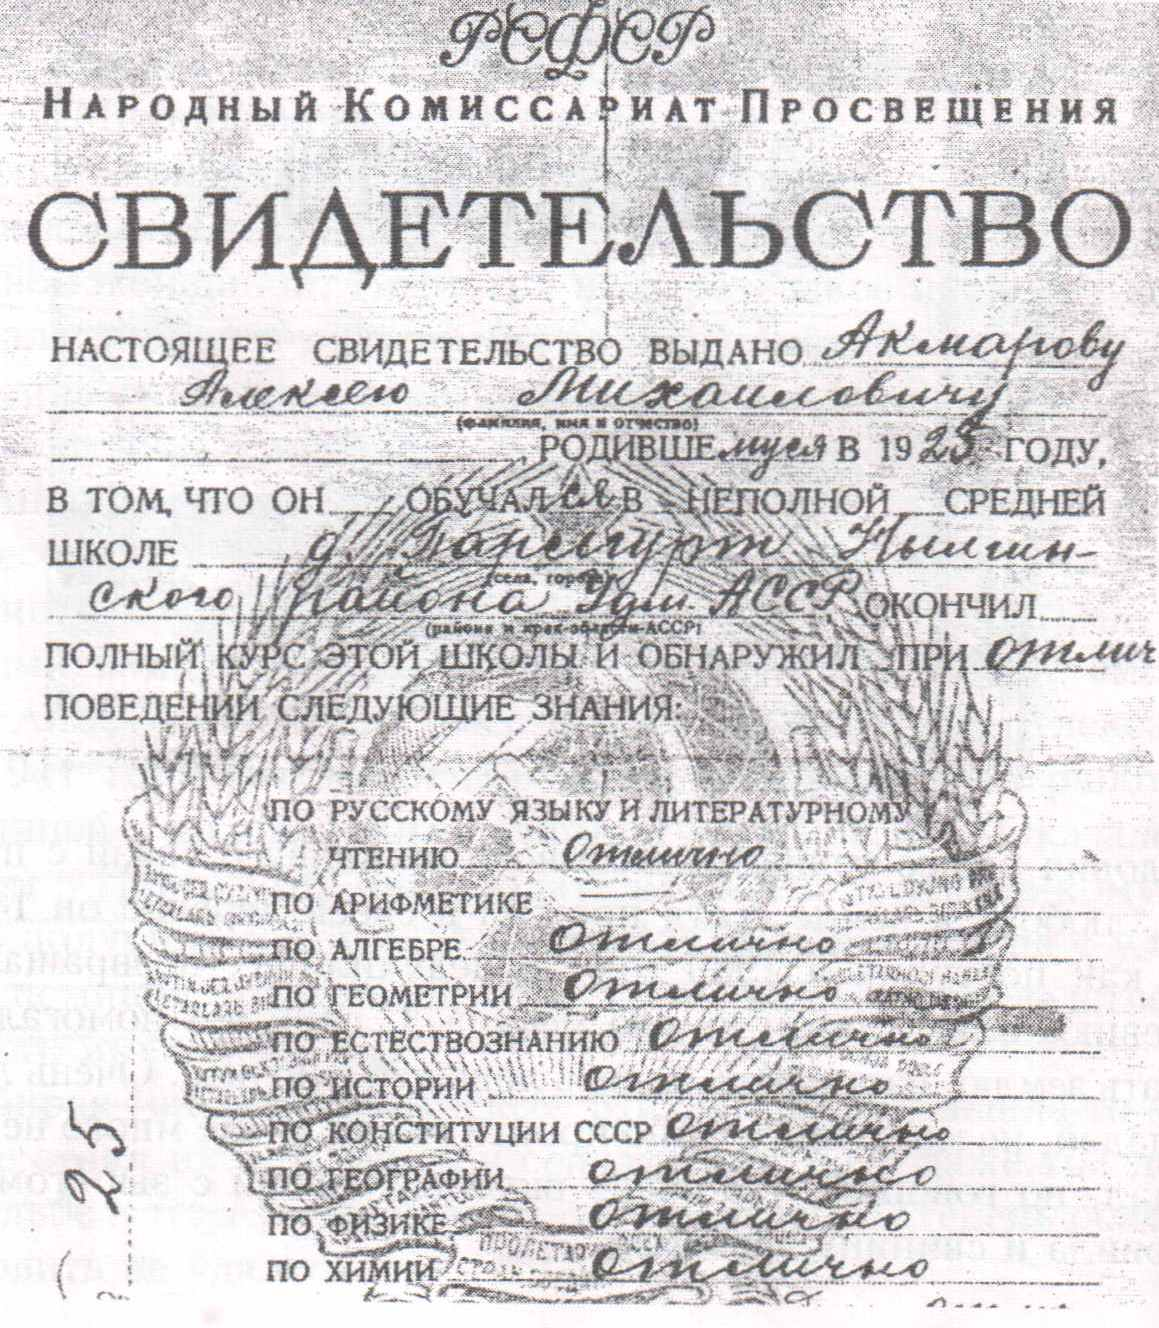 РСФСР
НАРОДНЫЙ КОМИССАРИАТ ПРОСВЕЩЕНИЯ
СВИДЕТЕЛЬСТВО
НАСТОЯЩЕЕ СВИДЕТЕЛЬСТВО ВЫДАНО Акмарову
Алексею Михаиловичу
(фамилия, имя и отчество)
РОДИВШЕмуся В 1925 ГОДУ,
В ТОМ, ЧТО ОН ОБУЧАЛся В НЕПОЛНОЙ СРЕДНЕЙ
ШКОЛЕ д. Нылгин-
(села, города)
ского района Удм. АССР ОКОНЧИЛ
(района и края-области-АССР)
ПОЛНЫЙ КУРС ЭТОЙ ШКОЛЫ И ОБНАРУЖИЛ ПРИ отлич
ПОВЕДЕНИИ СЛЕДУЮЩИЕ ЗНАНИЯ:
ПО РУССКОМУ ЯЗЫКУ И ЛИТЕРАТУРНОМУ
ЧТЕНИЮ отлично
ПО АРИФМЕТИКЕ
ПО АЛГЕБРЕ отлично
ПО ГЕОМЕТРИИ отлично
ПО ЕСТЕСТВОЗНАНИЮ отлично
ПО ИСТОРИИ отлично
ПО КОНСТИТУЦИИ СССР отлично
ПО ГЕОГРАФИИ отлично
ПО ФИЗИКЕ отлично
ПО ХИМИИ отлично
25